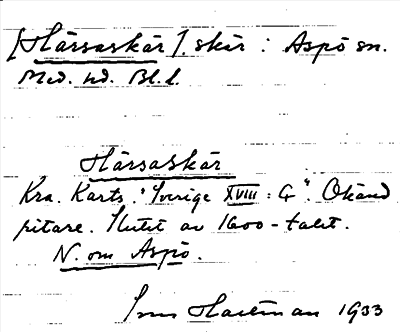 [Härsaskär] skär : Aspö sn.
Med. hd. Bl. l.
Härsaskär
Kra. Karts. "Sverige XVIII : G". Okänd
ritare. Slutet av 1600-talet.
N. om Aspö.
Hartman 1933